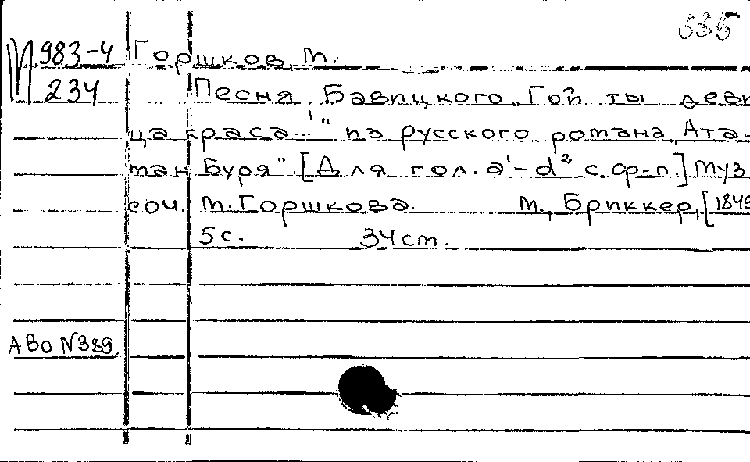 535
М 983-4 Горшков, М.
234 Песня Бавицкого „Гой ты деви
ца краса...!" из русского романа „Ата-
ман Буря" [Для гол. a¹-d² с ф-п.] Муз
соч. М. Горшкова. М., Бриккер, [1849
5 с. 34 cm.
АВо N 389